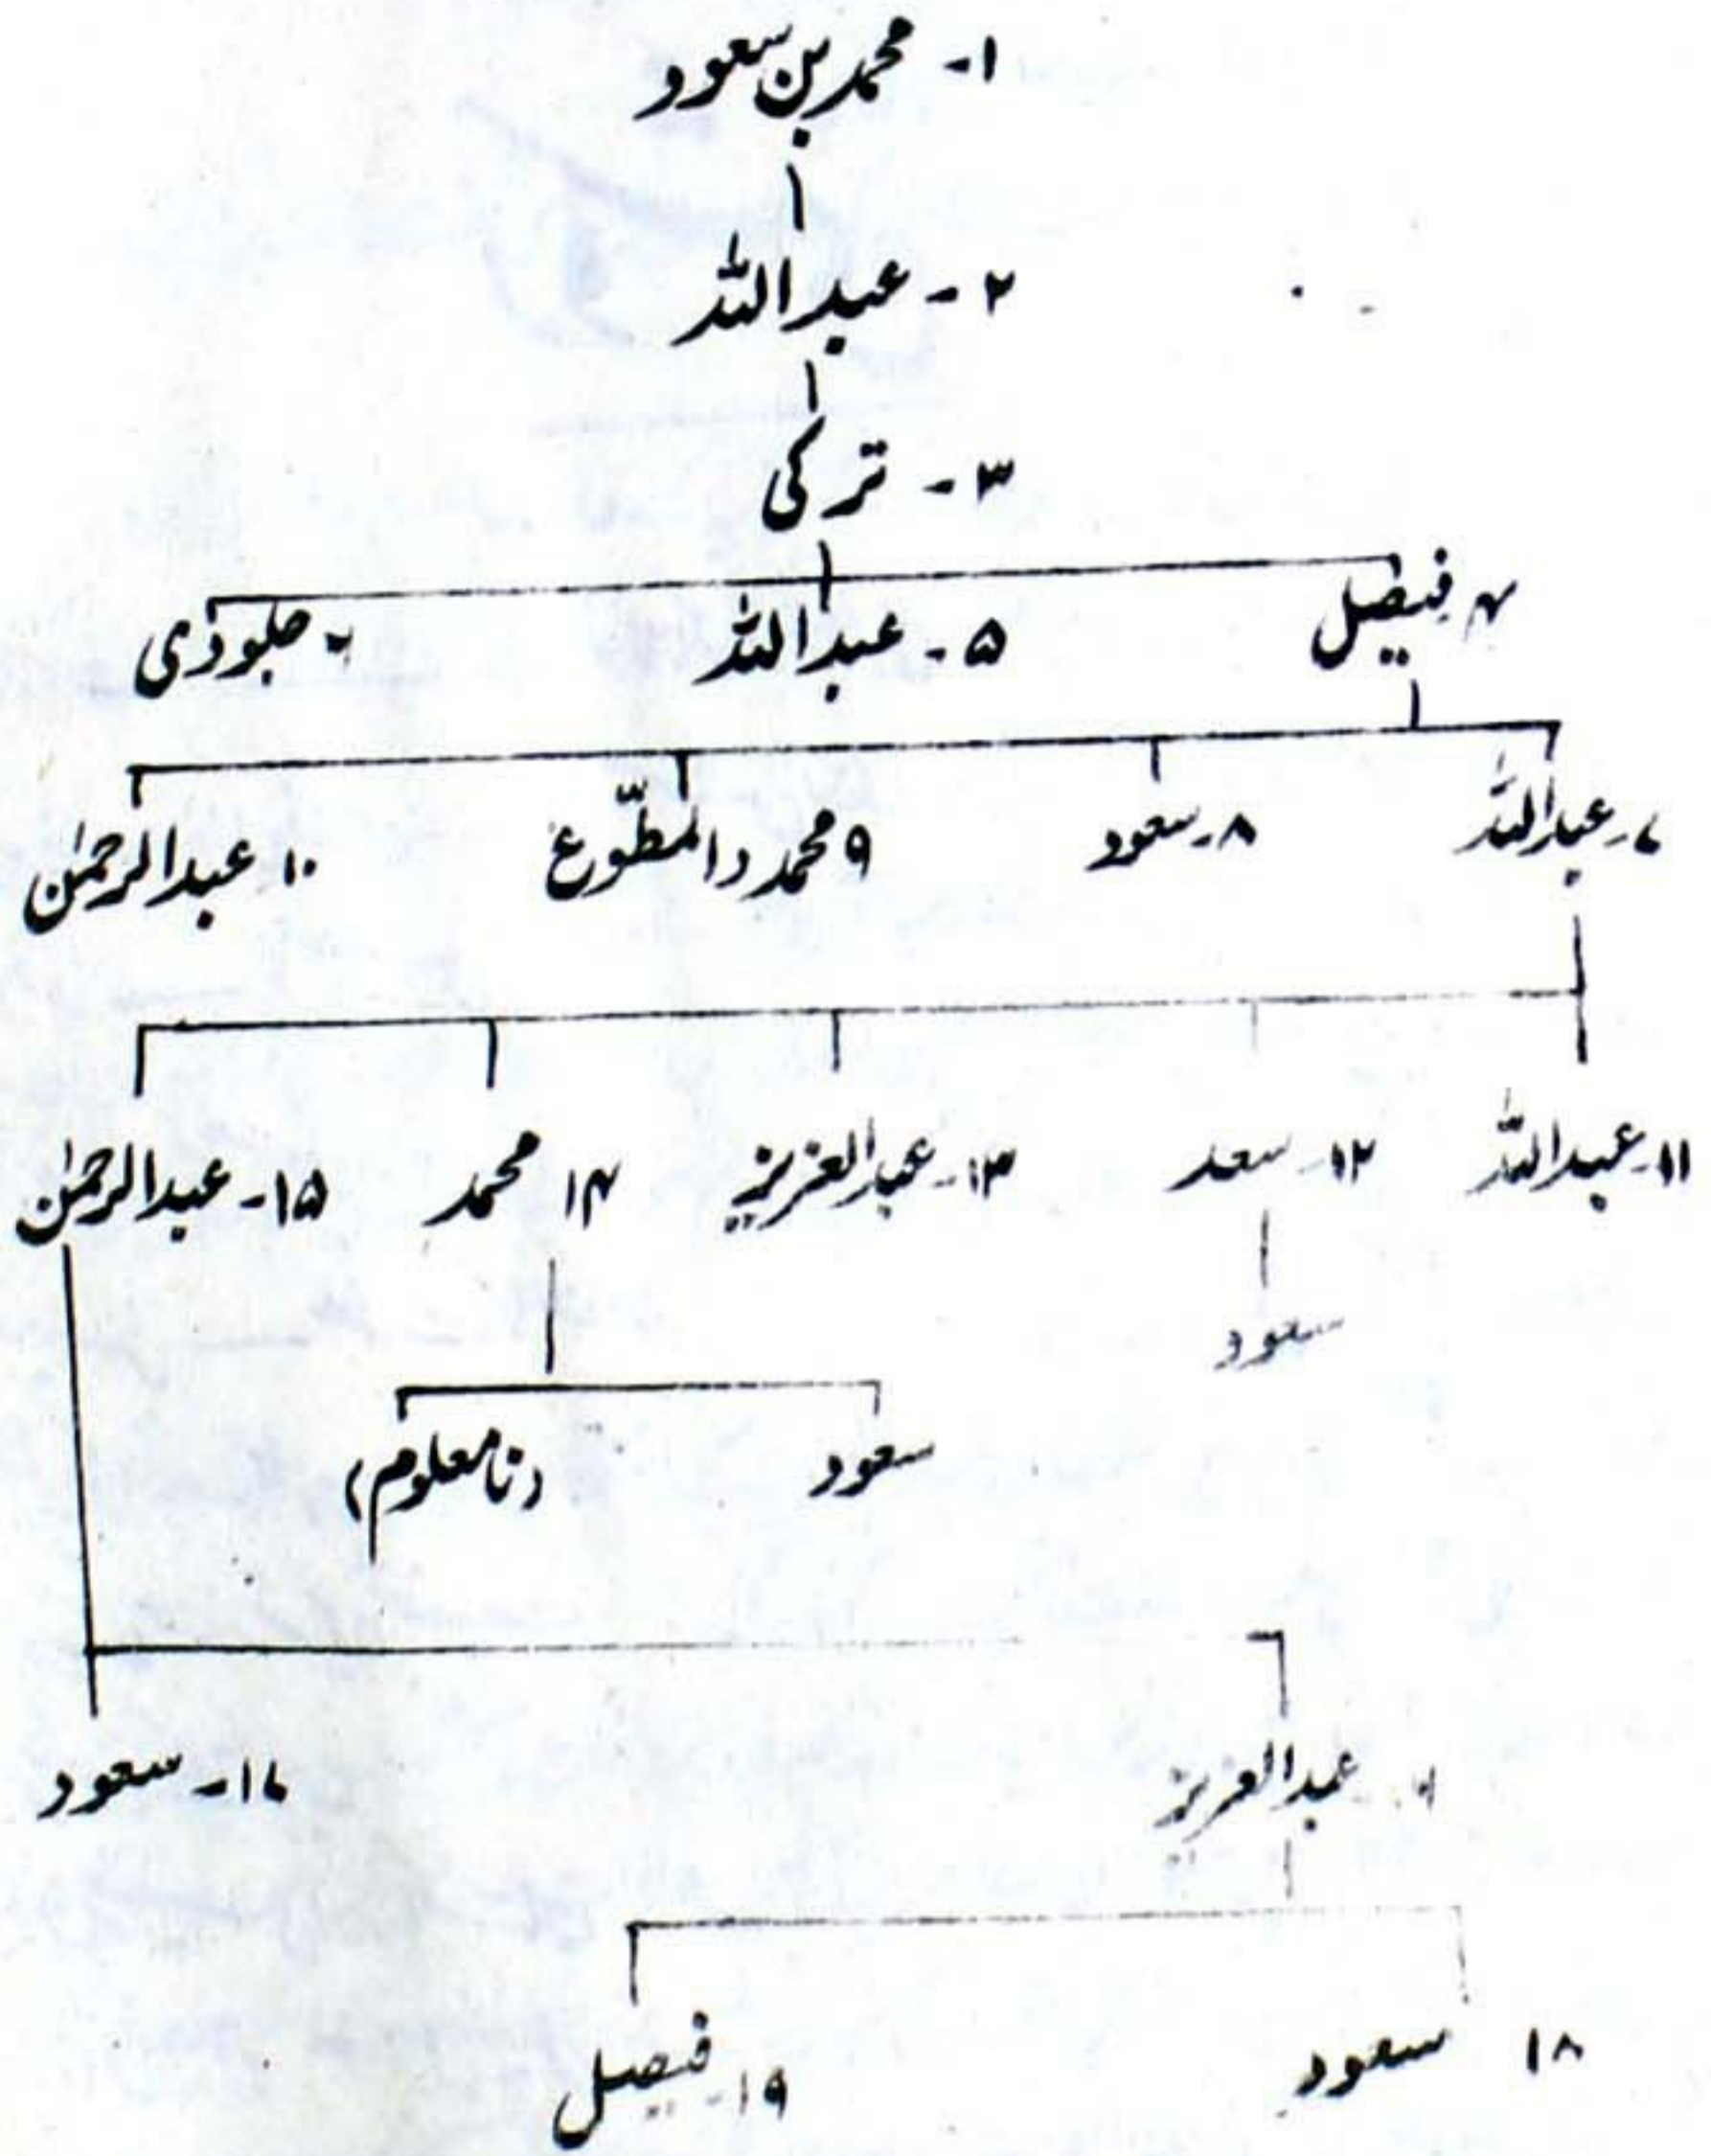 ۱- محمد بن سعود
۲- عبداللہ
۳- ترکی
۴ فیصل ۵- عبداللہ ۶ جلوذی
۷- عبداللہ ۸- سعود ۹ محمد (المطوّع ۱۰ عبدالرحمٰن
۱۱- عبداللہ ۱۲- سعد ۱۳- عبدالعزیز ۱۴ محمد ۱۵- عبدالرحمٰن
سعود
سعود (نامعلوم)
عبدالعزیز ۱۷- سعود
۱۸ سعود ۱۹- فیصل